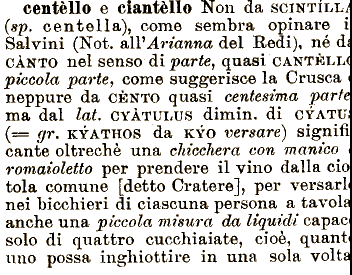 centèllo e ciantèllo Non da SCINTÍLLA
(sp. centella), come sembra opinare i
Salvini (Not. all'Arianna del Redi), né da
CÀNTO nel senso di parte, quasi CANTÈLLO
piccola parte, come suggerisce la Crusca
neppure da CÈNTO quasi centesima parte
ma dal lat. CYÀTULUS dimin. di CÝATUS
(= gr. KÝATHOS da KÝO versare) signifi
cante oltrechè una chicchera con manico o
romaioletto per prendere il vino dalla cio
tola comune [detto Cratere], per versarlo
nei bicchieri di ciascuna persona a tavola
anche una piccola misura da liquidi capace
solo di quattro cucchiaiate, cioè, quant
uno possa inghiottire in una sola volta